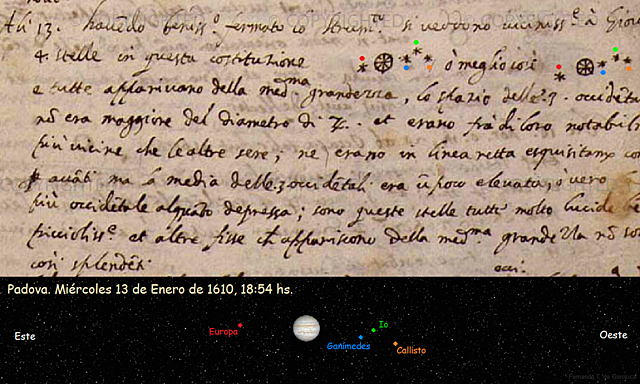 Adì 13. havendo beniss.o fermato lo strum.to si veddono viciniss.o à Giov
4. stelle in questa costituzione ò meglio così
e tutte apparivano della med.ma grandezza, lo spazio delle 3. occidēta
nō era maggiore del diametro di ♃. et erano frà di loro notabil
più vicine che le altre sere; ne erano in linea retta esquisitam co
p avāti ma la media delle 3 occidētali era ū poco elevata, ò vero
più occidētale alquāto depressa; sono queste stelle tutte molto lucide be
piccioliss.e et altre fisse ch appariscono della med.ma grandezza nō so
così splendēti.
Padova. Miércoles 13 de Enero de 1610, 18:54 hs.
Este
Europa
Ganímedes
Io
Callisto
Oeste